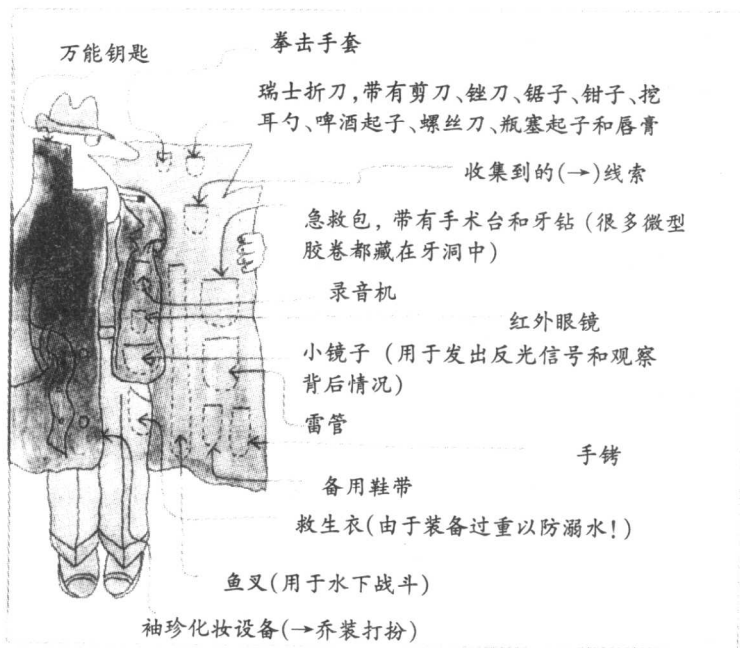 万能钥匙
拳击手套
瑞士折刀,带有剪刀、锉刀、锯子、钳子、挖
耳勺、啤酒起子、螺丝刀、瓶塞起子和唇膏
收集到的(→)线索
急救包，带有手术台和牙钻（很多微型
胶卷都藏在牙洞中）
录音机
红外眼镜
小镜子（用于发出反光信号和观察
背后情况）
雷管
手铐
备用鞋带
救生衣(由于装备过重以防溺水!)
鱼叉(用于水下战斗)
袖珍化妆设备(→乔装打扮)